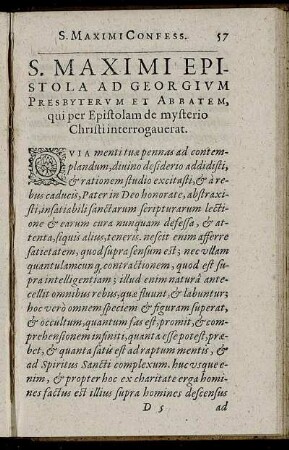 S. MAXIMI CONFESS. 57
S. MAXIMI EPI-
STOLA AD GEORGIVM
PRESBYTERVM ET ABBATEM,
qui per Epistolam de mysterio
Christi interrogauerat.
QVIA menti tuæ pennas ad contem-
plandum, diuino desiderio addidisti,
& rationem studio excitasti, & à re-
bus caducis, Pater in Deo honorate, abstraxi-
sti, insatiabili sanctarum scripturarum lectio
ne & earum cura nunquam defessa, & at-
tenta, siquis alius, teneris. nescit enim afferre
satietatem, quod supra sensum est; nec vllam
quantulamcunq, contractionem, quod est su-
pra intelligentiam; illud enim naturâ ante-
cellit omnibus rebus, quæ fluunt, & labuntur;
hoc verò omnem speciem & figuram superat,
& occultum, quantum fas est, promit, & com-
prehensionem infiniti, quanta esse potest, præ-
bet, & quanta satis est ad raptum mentis, & ad
ad Spiritus Sancti complexum. hucvsque e-
nim, & propter hoc ex charitate erga homi-
nes factus est illius supra homines descensus
D 5 ad